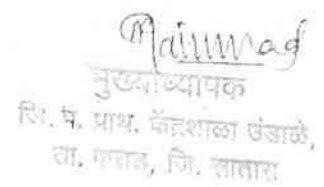 मुख्याध्यापक
जि. प. प्राथ. केंद्रशाळा उंडाळे,
ता. कराड, जि. सातारा